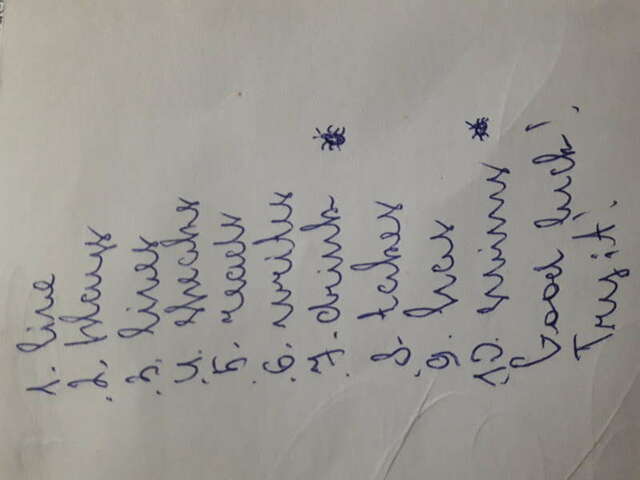 1. live
2. plays
3. lives
4. speaks
5. reads
6. writes
7. drink
8. takes
9. has
10. swims
Good luck!
Try it.